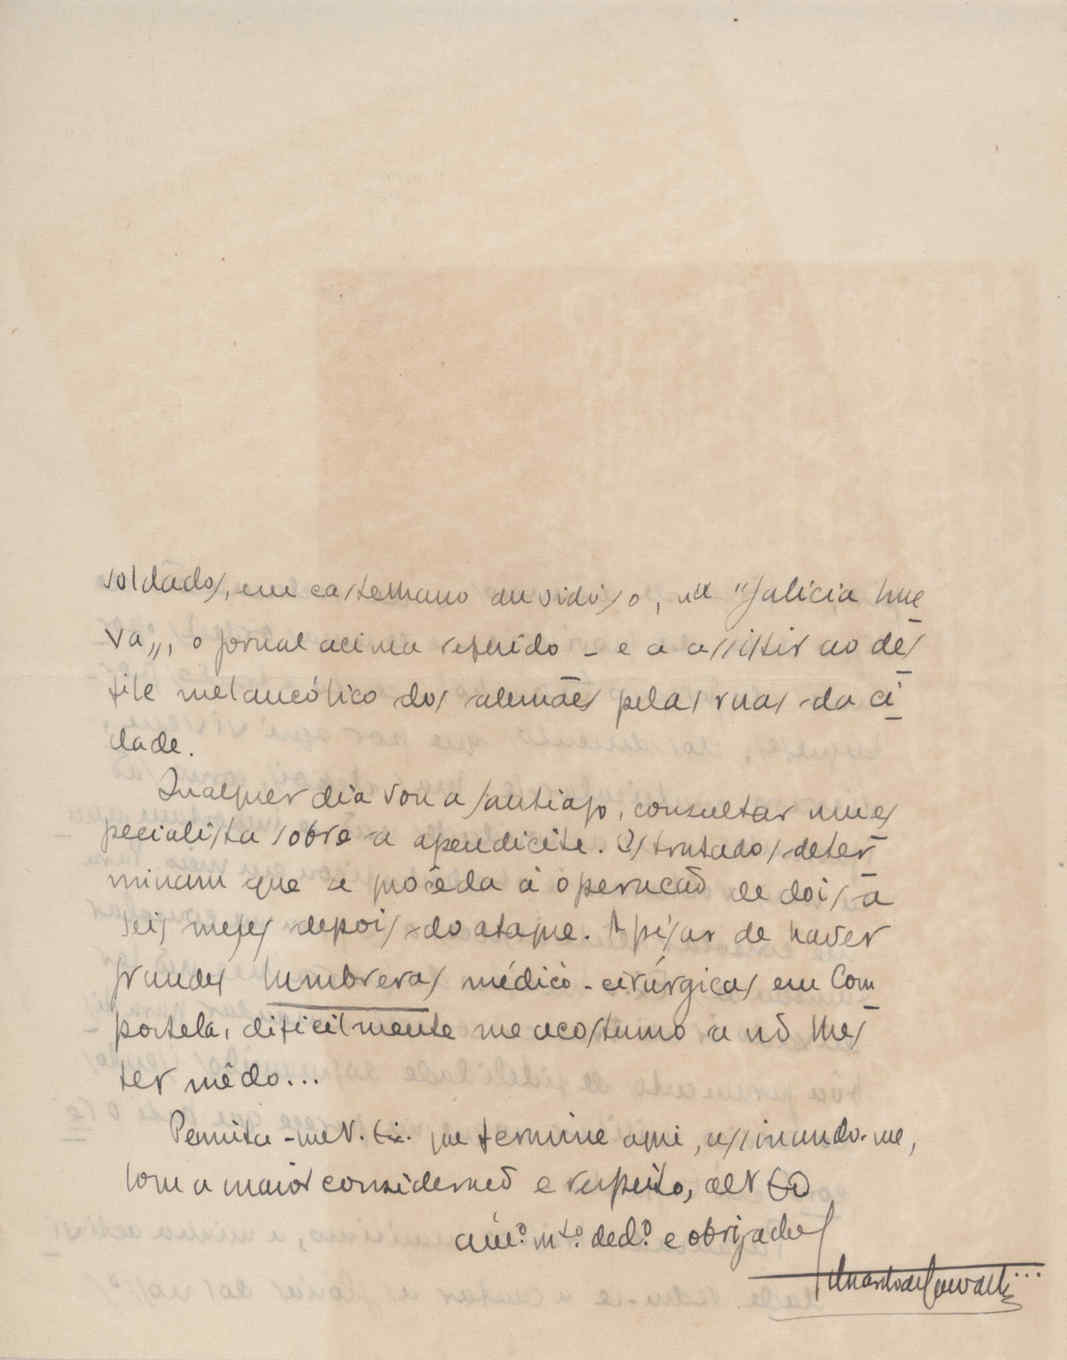 soldados, em castelhano ansidiso, na "Galicia Nue
va", o jornal acima referido - e a assistir ao des
file melancólico dos alemães pelas ruas da ci
dade.
Qualquer dia vou a Santiago, consultar um es
pecialista sobre a apendicite. Os tratados deter
minam que se proceda á operação de dois a
seis meses depois do ataque. Apesar de haver
grandes lumbreras médico-cirúrgicas em Com
postela, dificilmente me acostumo a não lhes
ter mêdo...
Permita-me V. Ex. que termine aqui, assinando-me,
com a maior consideração e respeito, de V. Ex.
am.º m.to ded.º e obrigado